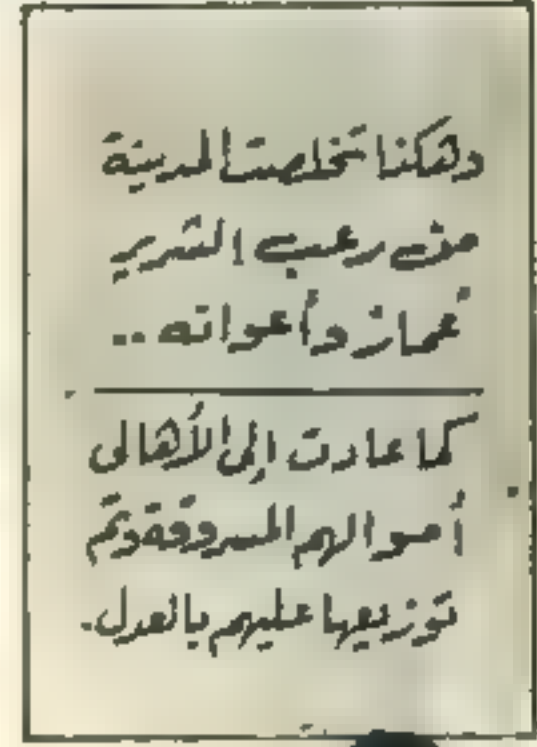 وهكذا تخلصت المدينة
من رعب الشرير
غماز وأعوانه ..
كما عادت إلى الأهالى
أموالهم المسروقة وتم
توزيعها عليهم بالعدل.